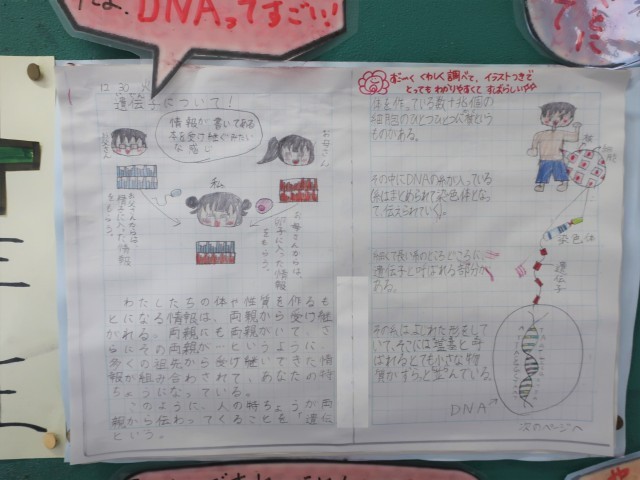 DNAってすごい!
12 30
遺伝子について!
情報が書いてある
お父さん
お母さん
私
わたしたちの体や性質を作るも
とになる情報は、両親から受け継
がれる。両親にも両親がいて、さ
らにその両親が…というように、
多くの祖先から受け継いできた情
報が組み合わされて、あなたの特
ちょうになっている。
このように、人の特ちょうが両
親から伝わってくることを「遺伝」
という。
すごーくくわしく調べて、イラストつきで
とってもわかりやすくてすばらしい!
体を作っている数十兆個の
細胞のひとつひとつに核という
ものがある。
核
細胞
その中にDNAの糸が入っている
糸はまとめられて染色体とな
って伝えられていく。
染色体
細くて長い糸のところどころに、
遺伝子と呼ばれる部分が
ある。
遺伝子
その糸はよじれた形をして
いて、そこには塩基と呼
ばれるとても小さな物
質がずらっと並んでいる。
DNA
次のページへ